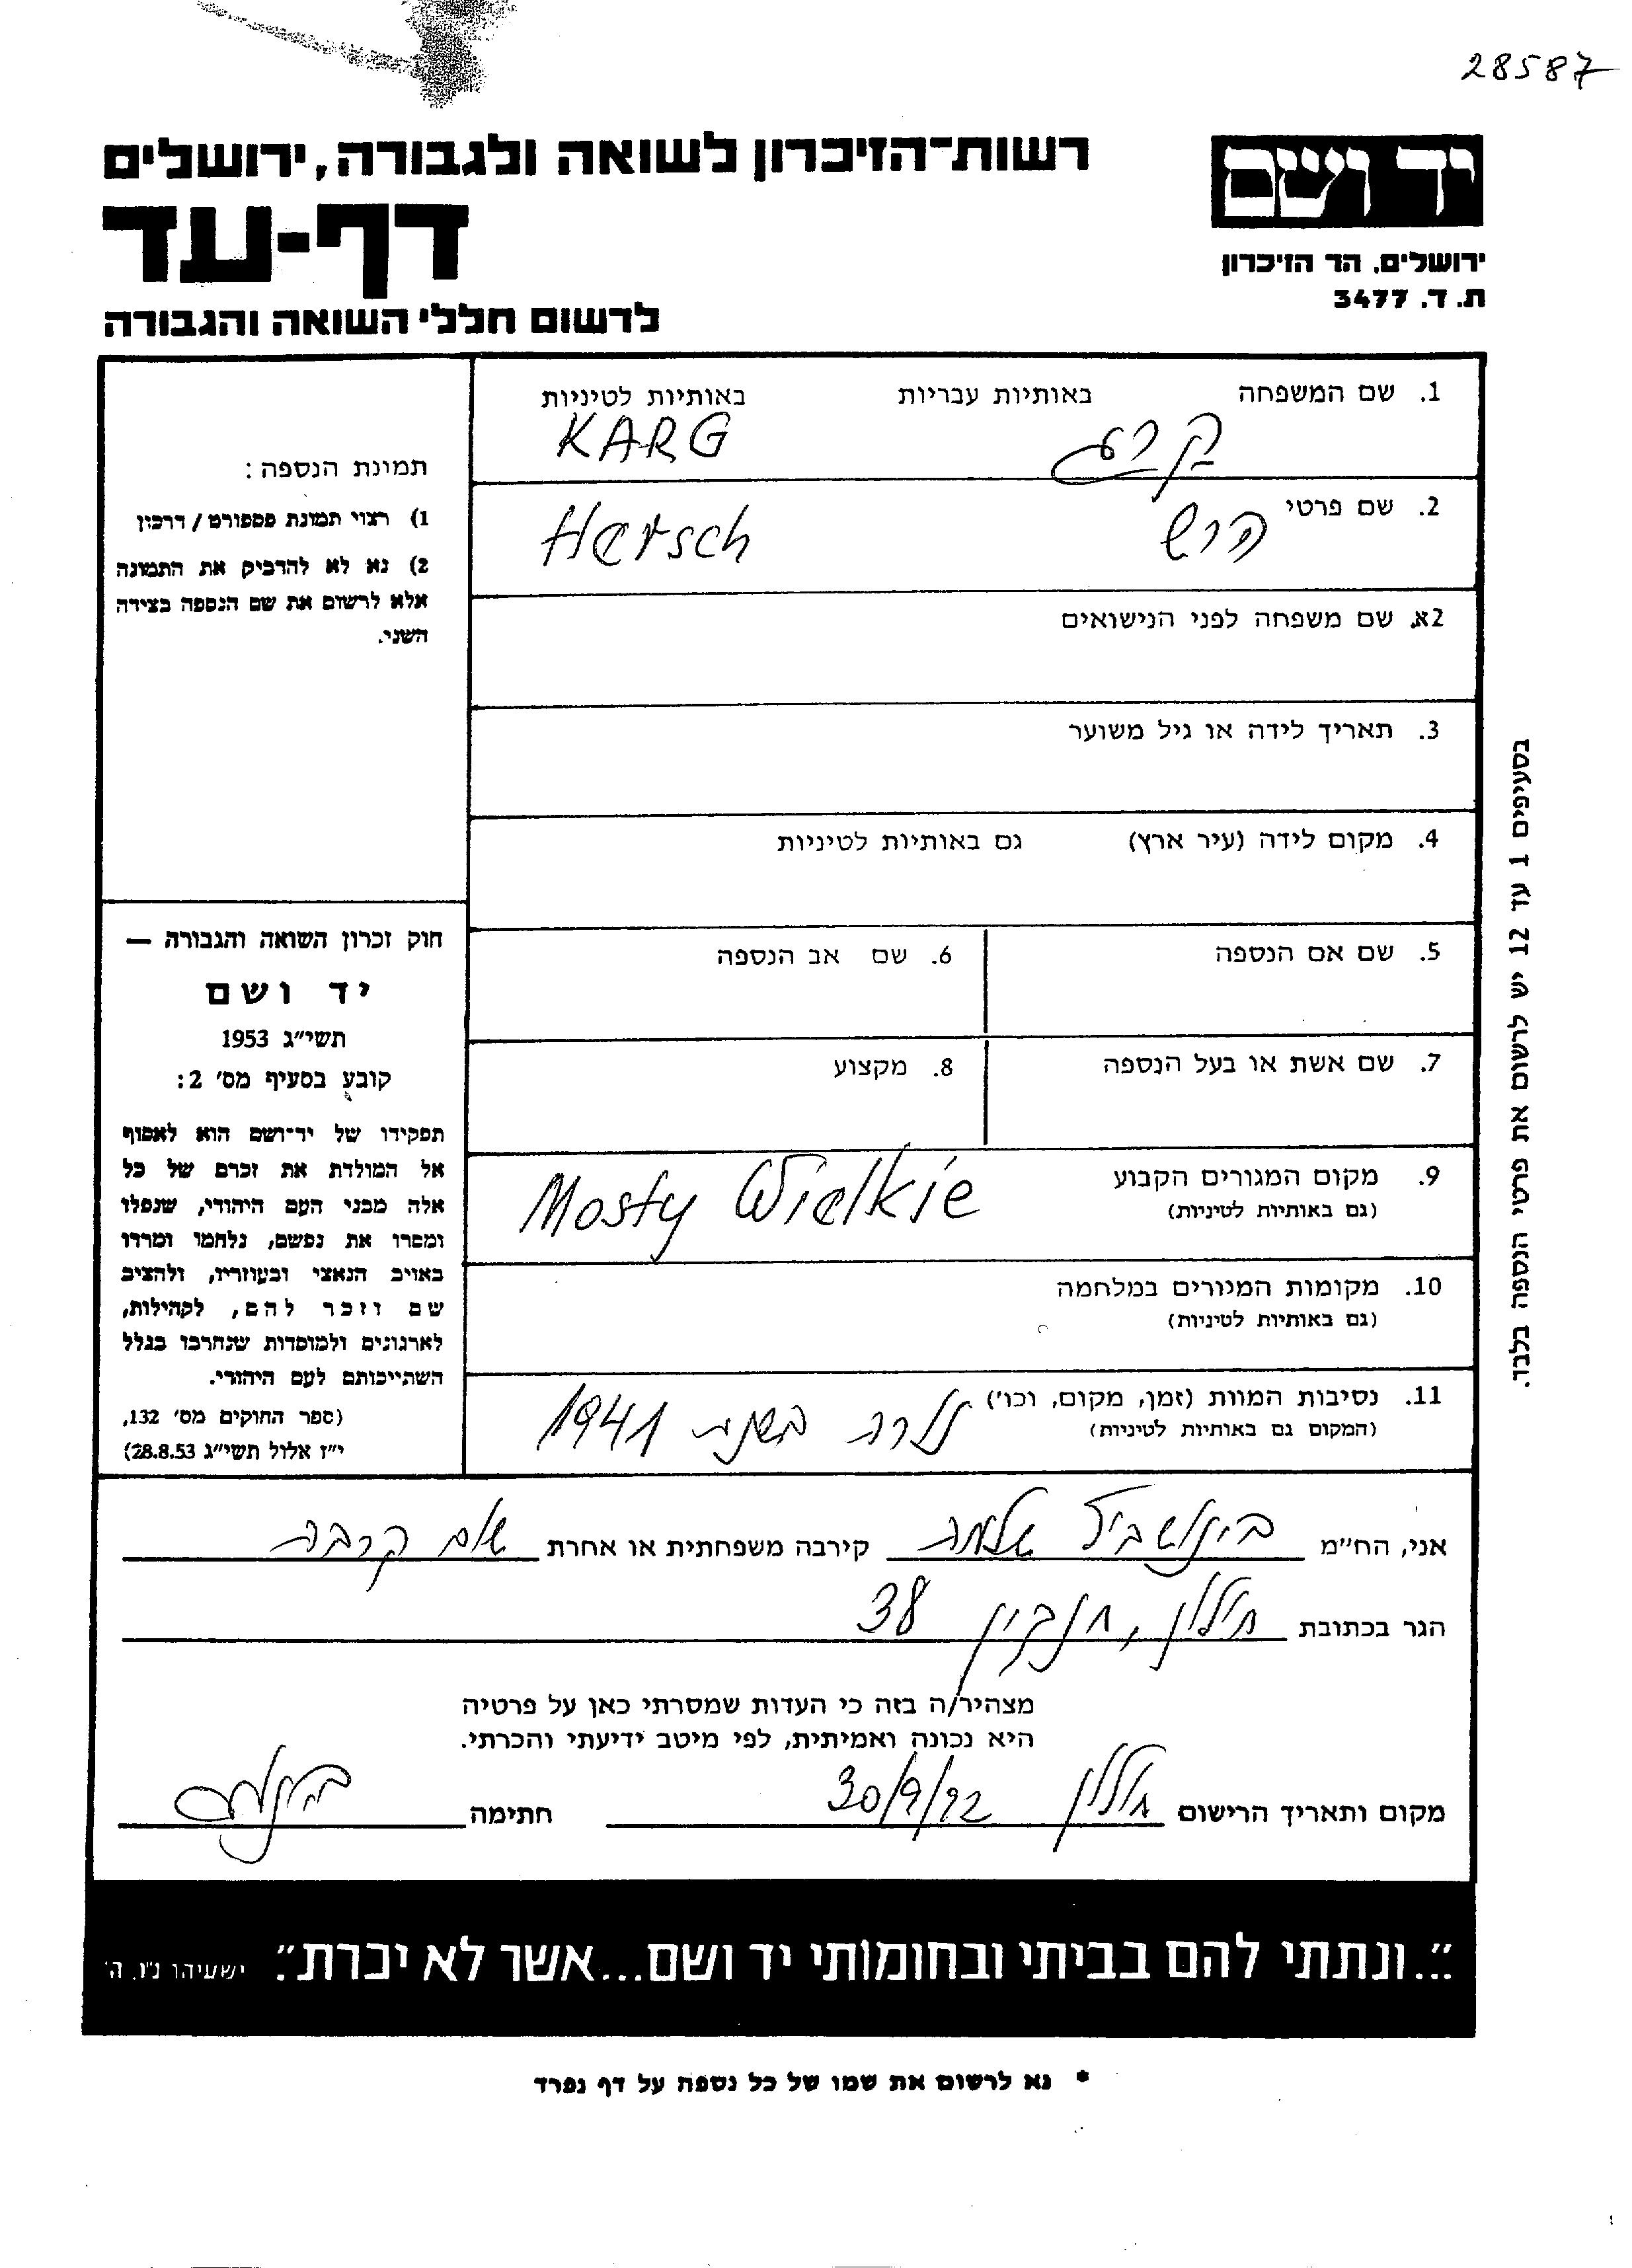 28587
יד ושם
ירושלים. הר הזיכרון
ת. ד. 3477
רשות־הזיכרון לשואה ולגבורה, ירושלים
דף-עד
לרשום חללי השואה והגבורה
1. שם המשפחה באותיות עבריות באותיות לטיניות
קרג KARG
2. שם פרטי הרש Hersch
2א. שם משפחה לפני הנישואים
3. תאריך לידה או גיל משוער
4. מקום לידה (עיר ארץ) גם באותיות לטיניות
5. שם אם הנספה 6. שם אב הנספה
7. שם אשת או בעל הנספה 8. מקצוע
9. מקום המגורים הקבוע Mosty Wielkie
(גם באותיות לטיניות)
10. מקומות המגורים במלחמה
(גם באותיות לטיניות)
11. נסיבות המוות (זמן, מקום, וכו') בשנת 1941
(המקום גם באותיות לטיניות)
תמונת הנספה:
1) רצוי תמונת פספורט / דרכון
2) נא לא להדביק את התמונה
אלא לרשום את שם הנספה בצידה
השני.
חוק זכרון השואה והגבורה —
יד ושם
תשי"ג 1953
קובע בסעיף מס' 2:
תפקידו של יד־ושם הוא לאסוף
אל המולדת את זכרם של כל
אלה מבני העם היהודי, שנפלו
ומסרו את נפשם, נלחמו ומרדו
באויב הנאצי ובעוזריו, ולהציב
שם וזכר להם, לקהילות,
לארגונים ולמוסדות שנחרבו בגלל
השתייכותם לעם היהודי.
(ספר החוקים מס' 132,
י"ז אלול תשי"ג 28.8.53)
בסעיפים 1 עד 12 יש לרשום את פרטי הנספה בלבד.
אני, הח"מ שלמה קירבה משפחתית או אחרת קרבה
הגר בכתובת חולון, חנקין 38
מצהיר/ה בזה כי העדות שמסרתי כאן על פרטיה
היא נכונה ואמיתית, לפי מיטב ידיעתי והכרתי.
מקום ותאריך הרישום חולון 30/9/92 חתימה
"...ונתתי להם בביתי ובחומותי יד ושם...אשר לא יכרת". ישעיהו נ"ו, ה'
* נא לרשום את שמו של כל נספה על דף נפרד